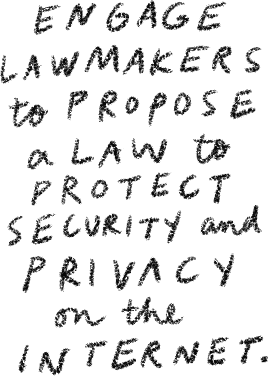 ENGAGE
LAWMAKERS
to PROPOSE
a LAW to
PROTECT
SECURITY and
PRIVACY
on the
INTERNET.